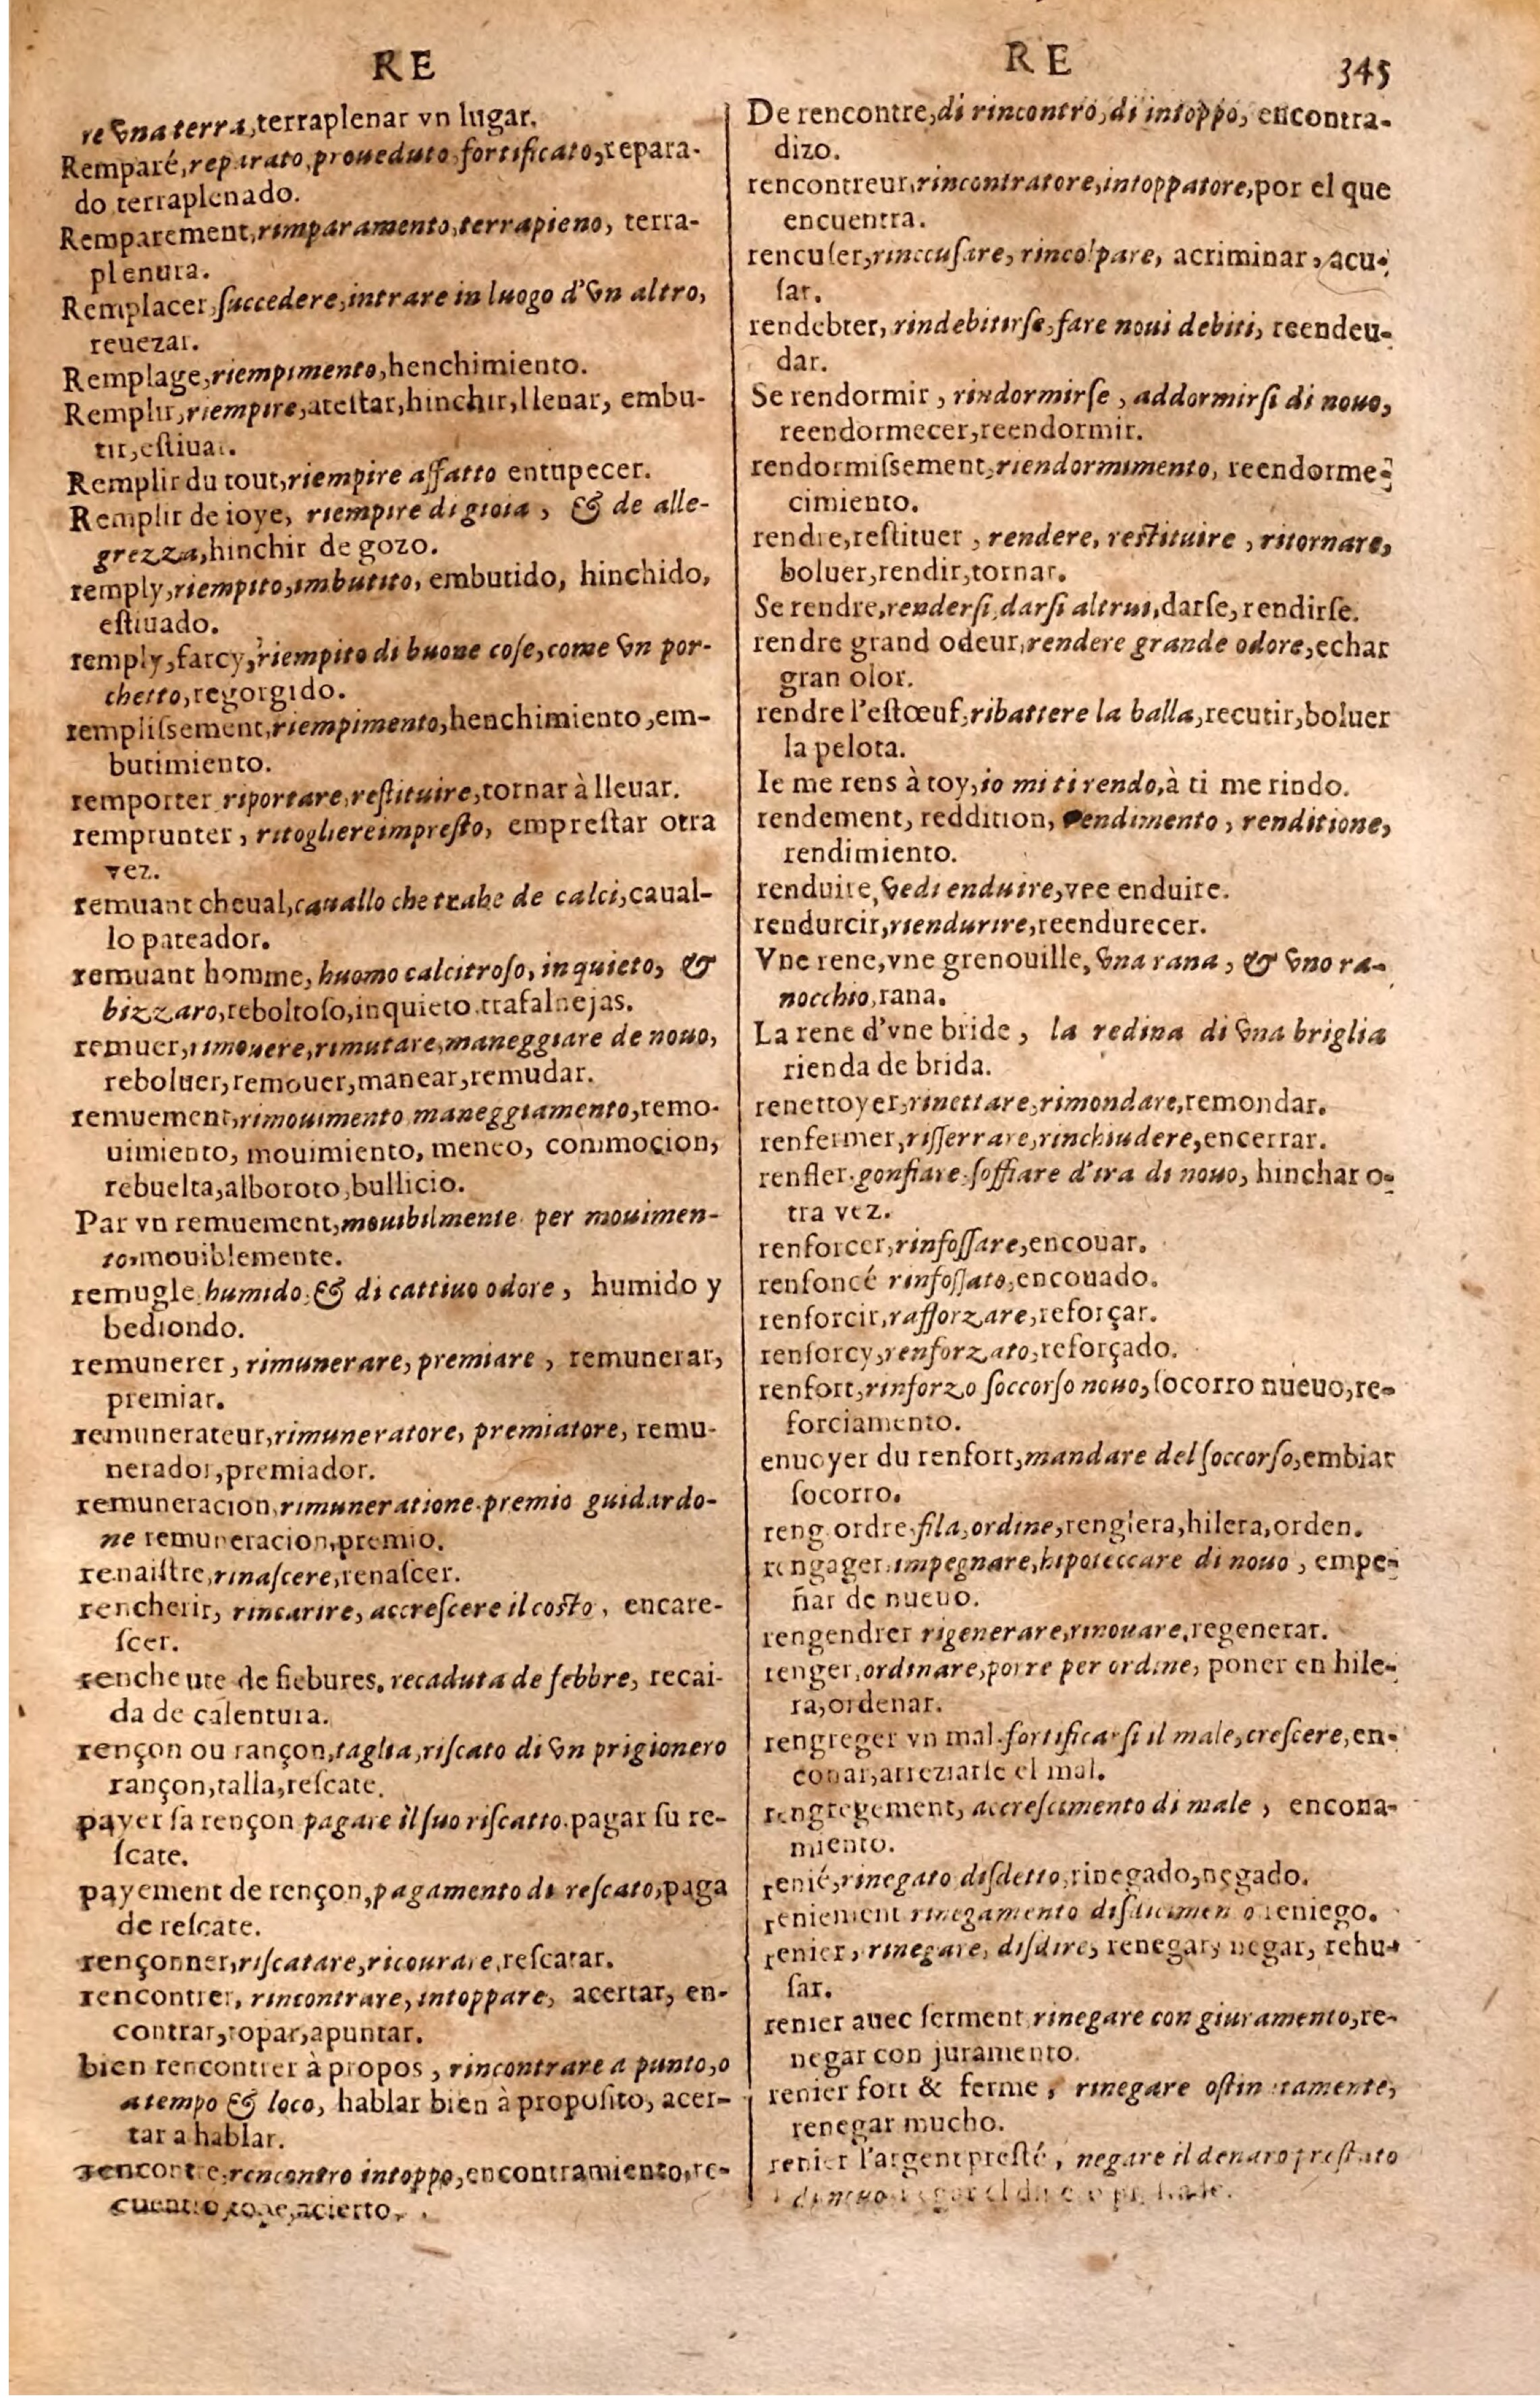 RE
re vna terra, terraplenar vn lugar.
Remparé, reparato, proueduto, fortificato, repara-
do terraplenado.
Remparement, rimparamento, terrapieno, terra-
plenura.
Remplacer, ſuccedere, intrare in luogo d'vn altro,
reuezar.
Remplage, riempimento, henchimiento.
Remplir, riempire, ateſtar, hinchir, llenar, embu-
tir, eſtiuar.
Remplir du tout, riempire affatto entupecer.
Remplir de ioye, riempire di gioia, & de alle-
grezza, hinchir de gozo.
remply, riempito, imbutito, embutido, hinchido,
eſtiuado.
remply, farcy, riempito di buone coſe, come vn por-
chetto, regorgido.
rempliſsement, riempimento, henchimiento, em-
butimiento.
remporter riportare, reſtituire, tornar à lleuar.
remprunter, ritogliere impreſto, empreſtar otra
vez.
remuant cheual, cauallo che trahe de calci, caual-
lo pateador.
remuant homme, huomo calcitroſo, inquieto, &
bizzaro, reboltoſo, inquieto trafalnejas.
remuer, rimouere, rimutare, maneggiare de nouo,
reboluer, remouer, manear, remudar.
remuement, rimouimento maneggiamento, remo-
uimiento, mouimiento, meneo, conmocion,
rebuelta, alboroto, bullicio.
Par vn remuement, mouibilmente per mouimen-
to, mouiblemente.
remugle humido, & di cattiuo odore, humido y
bediondo.
remunerer, rimunerare, premiare, remunerar,
premiar.
remunerateur, rimuneratore, premiatore, remu-
nerador, premiador.
remuneracion, rimuneratione premio guidardo-
ne remuneracion, premio.
renaiſtre, rinaſcere, renaſcer.
rencherir, rincarire, accreſcere il coſto, encare-
ſcer.
rencheute de fiebures, recaduta de febbre, recai-
da de calentura.
rençon ou rançon, taglia, riſcato di vn prigionero
rançon, talla, reſcate.
payer ſa rençon pagare il ſuo riſcatto. pagar ſu re-
ſcate.
payement de rençon, pagamento di reſcato, paga
de reſcate.
rençonner, riſcatare, ricourare, reſcatar.
rencontrer, rincontrare, intoppare, acertar, en-
contrar, topar, apuntar.
bien rencontrer à propos, rincontrare a punto, o
a tempo & loco, hablar bien à propoſito, acer-
tar a hablar.
rencontre, rencontro intoppo, encontramiento, re-
cuentro, tope, acierto.
RE
345
De rencontre, di rincontro, di intoppo, encontra-
dizo.
rencontreur, rincontratore, intoppatore, por el que
encuentra.
renculer, rinccuſare, rincolpare, acriminar, acu-
ſar.
rendebter, rindebitirſe, fare noui debiti, reendeu-
dar.
Se rendormir, rindormirſe, addormirſi di nouo,
reendormecer, reendormir.
rendormiſsement, riendormimento, reendorme-
cimiento.
rendre, reſtituer, rendere, reſtituire, ritornare,
boluer, rendir, tornar.
Se rendre, renderſi, darſi altrui, darſe, rendirſe.
rendre grand odeur, rendere grande odore, echar
gran olor.
rendre l'eſtœuf, ribattere la balla, recutir, boluer
la pelota.
Ie me rens à toy, io mi ti rendo, à ti me rindo.
rendement, reddition, rendimento, renditione,
rendimiento.
renduire, vedi enduire, vee enduire.
rendurcir, riendurire, reendurecer.
Vne rene, vne grenouille, vna rana, & vno ra-
nocchio, rana.
La rene d'vne bride, la redina di vna briglia
rienda de brida.
renettoyer, rinettare, rimondare, remondar.
renfermer, riſſerrare, rinchiudere, encerrar.
renfler. gonfiare. ſoffiare d'ira di nouo, hinchar o-
tra vez.
renforcer, rinfoſſare, encouar.
renfoncé rinfoſſato, encouado.
renforcir, rafforzare, reforçar.
renforcy, renforzato, reforçado.
renfort, rinforzo ſoccorſo nouo, ſocorro nueuo, re-
forciamento.
enuoyer du renfort, mandare del ſoccorſo, embiar
ſocorro.
reng ordre, fila, ordine, renglera, hilera, orden.
rengager impegnare, hipoteccare di nouo, empe-
ñar de nueuo.
rengendrer rigenerare, rinouare, regenerar.
renger, ordinare, porre per ordine, poner en hile-
ra, ordenar.
rengreger vn mal. fortificarſi il male, creſcere, en-
conar, arreziarſe el mal.
rengregement, accreſcimento di male, encona-
miento.
renié, rinegato diſdetto, rinegado, negado.
reniement rinegamento diſdicimen o reniego.
renier, rinegare, diſdire, renegar, negar, rehu-
ſar.
renier auec ſerment, rinegare con giuramento, re-
negar con juramento.
renier fort & ferme, rinegare oſtin tamente,
renegar mucho.
renier l'argent preſté, negare il denaro preſtato
di nouo